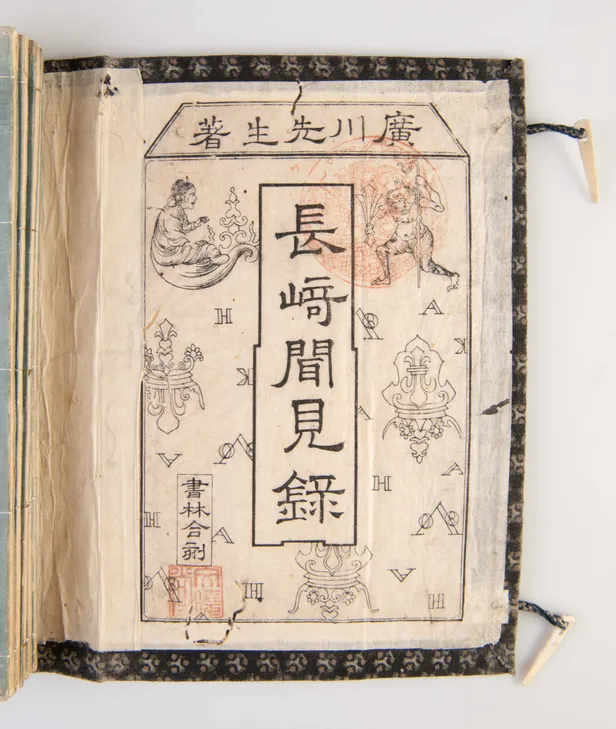 廣川先生著
長﨑聞見録
書林合刻